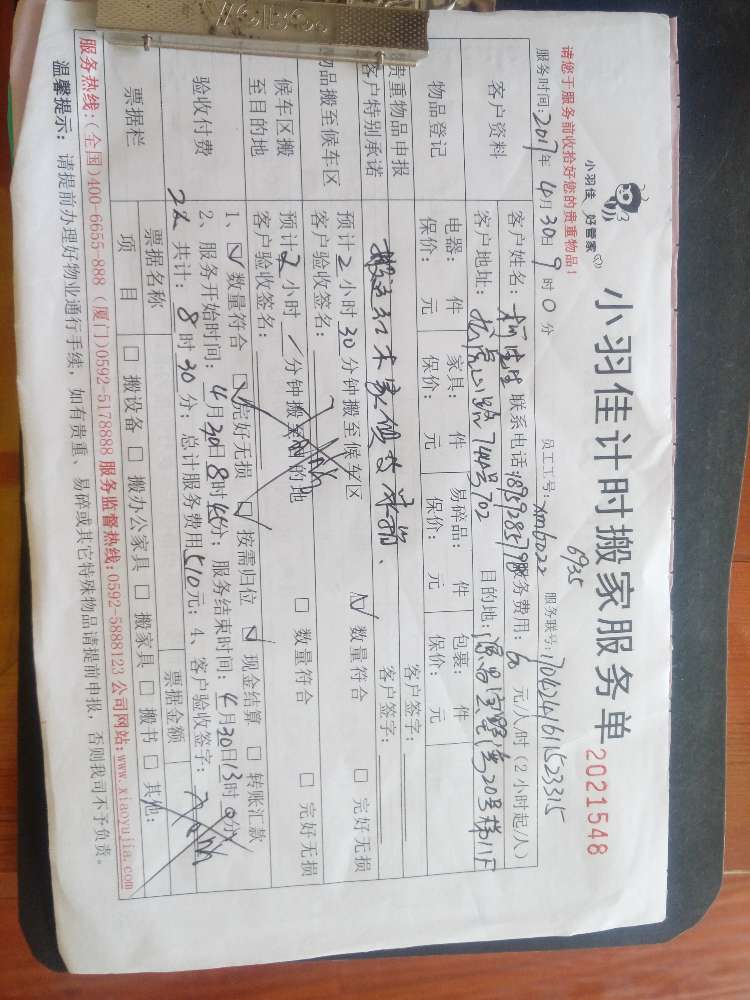 小羽佳 好管家
小羽佳计时搬家服务单 2021548
请您于服务前收拾好您的贵重物品!
6935
服务时间: 2017年4月30日9时0分 员工工号: xm6022 服务联号: 1704241611523315
客户资料
客户姓名: 联系电话: 服务费用: 60 元/人时 (2小时起/人)
客户地址: 虎山路744号702 目的地: 20号楼11F
物品登记
电器: 件 家具: 件 易碎品: 件 包裹: 件
保价: 元 保价: 元 保价: 元 保价: 元
贵重物品申报 客户签字:
客户特别承诺 搬运红木家俱 客户签字:
物品搬至候车区 预计2小时30分钟搬至候车区 ☑ 数量符合 □ 完好无损
客户验收签名:
候车区搬至目的地 预计2小时/分钟搬至目的地 □ 数量符合 □ 完好无损
客户验收签名:
验收付费
1、☑ 数量符合 ☑ 完好无损 ☑ 按需归位 ☑ 现金结算 □ 转账汇款
2、服务开始时间: 4月30日8时45分; 服务结束时间: 4月30日13时0分
2人 共计: 8时30分; 总计服务费用510元; 4、客户验收签字:
票据栏 票据名称 票据金额
项目 □ 搬设备 □ 搬办公家具 □ 搬家具 □ 搬书 □ 其他:
服务热线: (全国)400-6655-888 (厦门)0592-5178888 服务监督热线: 0592-5888123 公司网站: www.xiaoyujia.com
温馨提示: 请提前办理好物业通行手续, 如有贵重、易碎或其它特殊物品请提前申报, 否则我司不予负责。